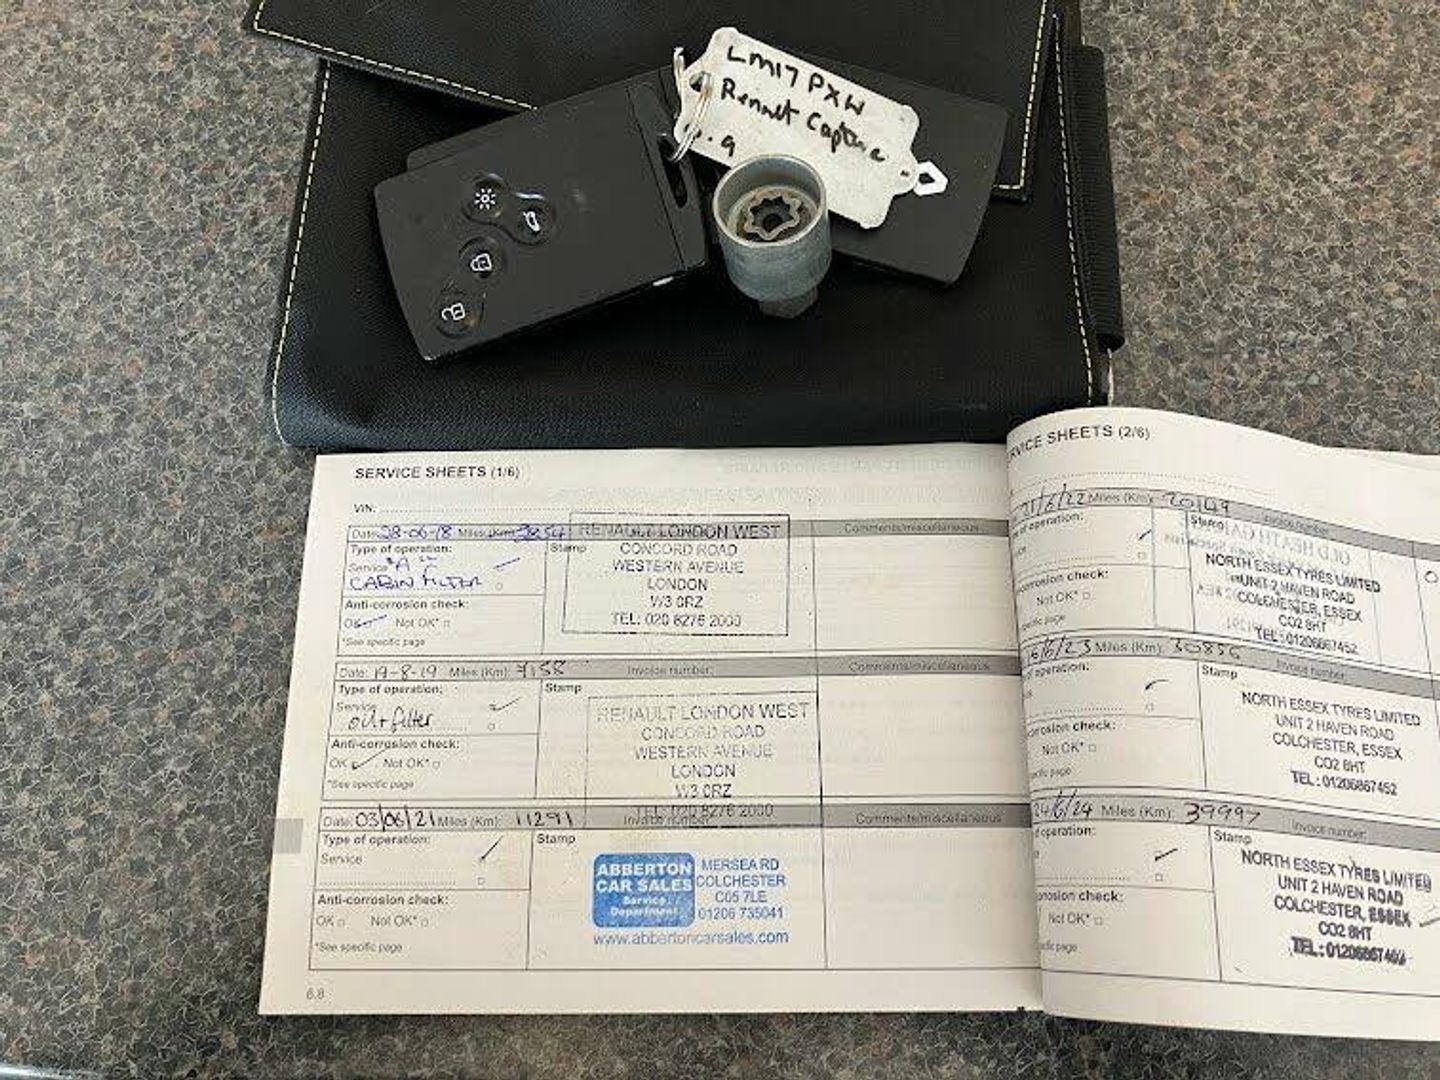 LM17 PXW
Renault Capture
0.9
SERVICE SHEETS (1/6)
VIN:
Date: 28-06-18 Miles (Km):
Type of operation:
Service "A"
CABIN FILTER
Anti-corrosion check:
OK Not OK*
*See specific page
Stamp
RENAULT LONDON WEST
CONCORD ROAD
WESTERN AVENUE
LONDON
W3 0RZ
TEL: 020 8276 2000
Comments/miscellaneous
Date: 19-8-19 Miles (Km): 7158 Invoice number:
Comments/miscellaneous
Type of operation:
Service
oil + filter
Anti-corrosion check:
OK Not OK*
*See specific page
Stamp
RENAULT LONDON WEST
CONCORD ROAD
WESTERN AVENUE
LONDON
W3 0RZ
TEL: 020 8276 2000
Date: 03/06/21 Miles (Km): 11291 Invoice number:
Comments/miscellaneous
Type of operation:
Service
Anti-corrosion check:
OK Not OK*
*See specific page
Stamp
ABBERTON
CAR SALES
Service
Department
MERSEA RD
COLCHESTER
CO5 7LE
01206 735041
www.abbertoncarsales.com
6.8
RVICE SHEETS (2/6)
21/6/22 Miles (Km): 20149 Invoice number:
of operation:
Stamp
NORTH ESSEX TYRES LIMITED
UNIT 2 HAVEN ROAD
COLCHESTER, ESSEX
CO2 8HT
TEL: 01206867452
corrosion check:
Not OK*
specific page
/6/23 Miles (Km): 30856 Invoice number:
of operation:
Stamp
NORTH ESSEX TYRES LIMITED
UNIT 2 HAVEN ROAD
COLCHESTER, ESSEX
CO2 8HT
TEL: 01206867452
corrosion check:
Not OK*
specific page
24/6/24 Miles (Km): 39997 Invoice number:
of operation:
Stamp
NORTH ESSEX TYRES LIMITED
UNIT 2 HAVEN ROAD
COLCHESTER, ESSEX
CO2 8HT
TEL: 01206867452
corrosion check:
Not OK*
specific page